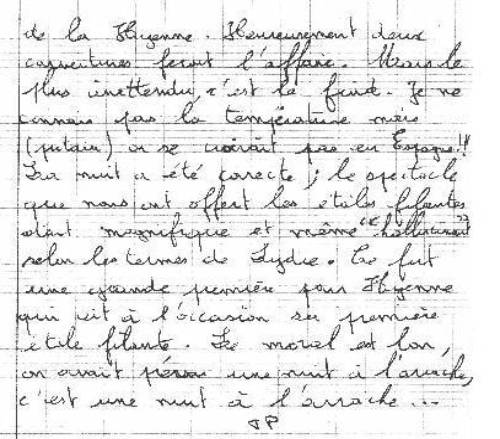 de la Hyenne. Heureusement deux
couvertures feront l'affaire. Mais le
plus inattendu, c'est le froid. Je ne
connais pas la température mais
(putain) on se croirait pas en Espagne!!
La nuit a été correcte ; le spectacle
que nous ont offert les étoiles filantes
était magnifique et même "hallucinant"
selon les termes de Lydie. Ce fut
une grande première pour Hyenne
qui vit à l'occasion sa première
étoile filante. Le moral est bon,
on avait prévu une nuit à l'arrache,
c'est une nuit à l'arrache...
JP